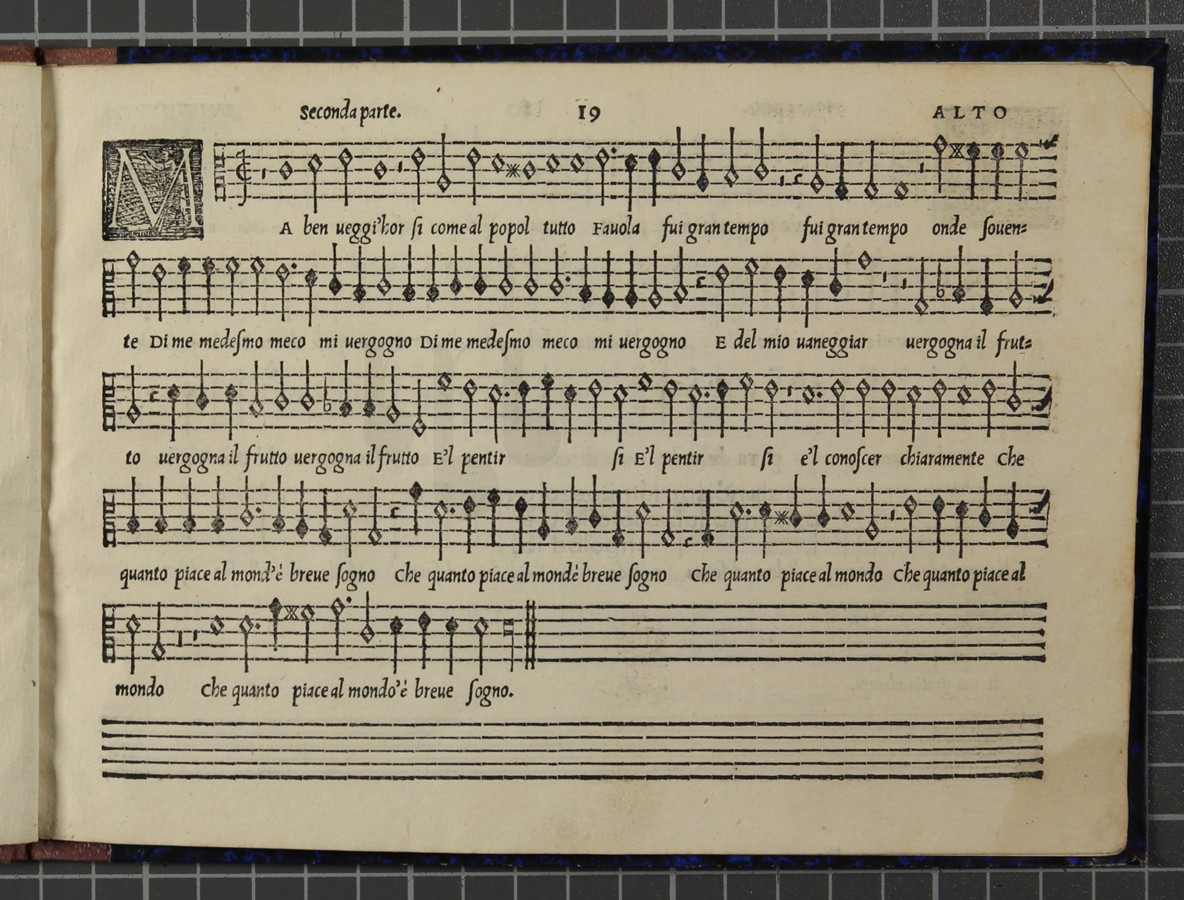 Seconda parte. 19 ALTO
MA ben ueggi'hor ſi come al popol tutto Fauola fui gran tempo fui gran tempo onde ſouen=
te Di me medeſmo meco mi uergogno Di me medeſmo meco mi uergogno E del mio uaneggiar uergogna il frut=
to uergogna il frutto uergogna il frutto E'l pentir ſi E'l pentir ſi e'l conoſcer chiaramente Che
quanto piace al mond'è breue ſogno Che quanto piace al mondè breue ſogno Che quanto piace al mondo Che quanto piace al
mondo Che quanto piace al mondo'è breue ſogno.